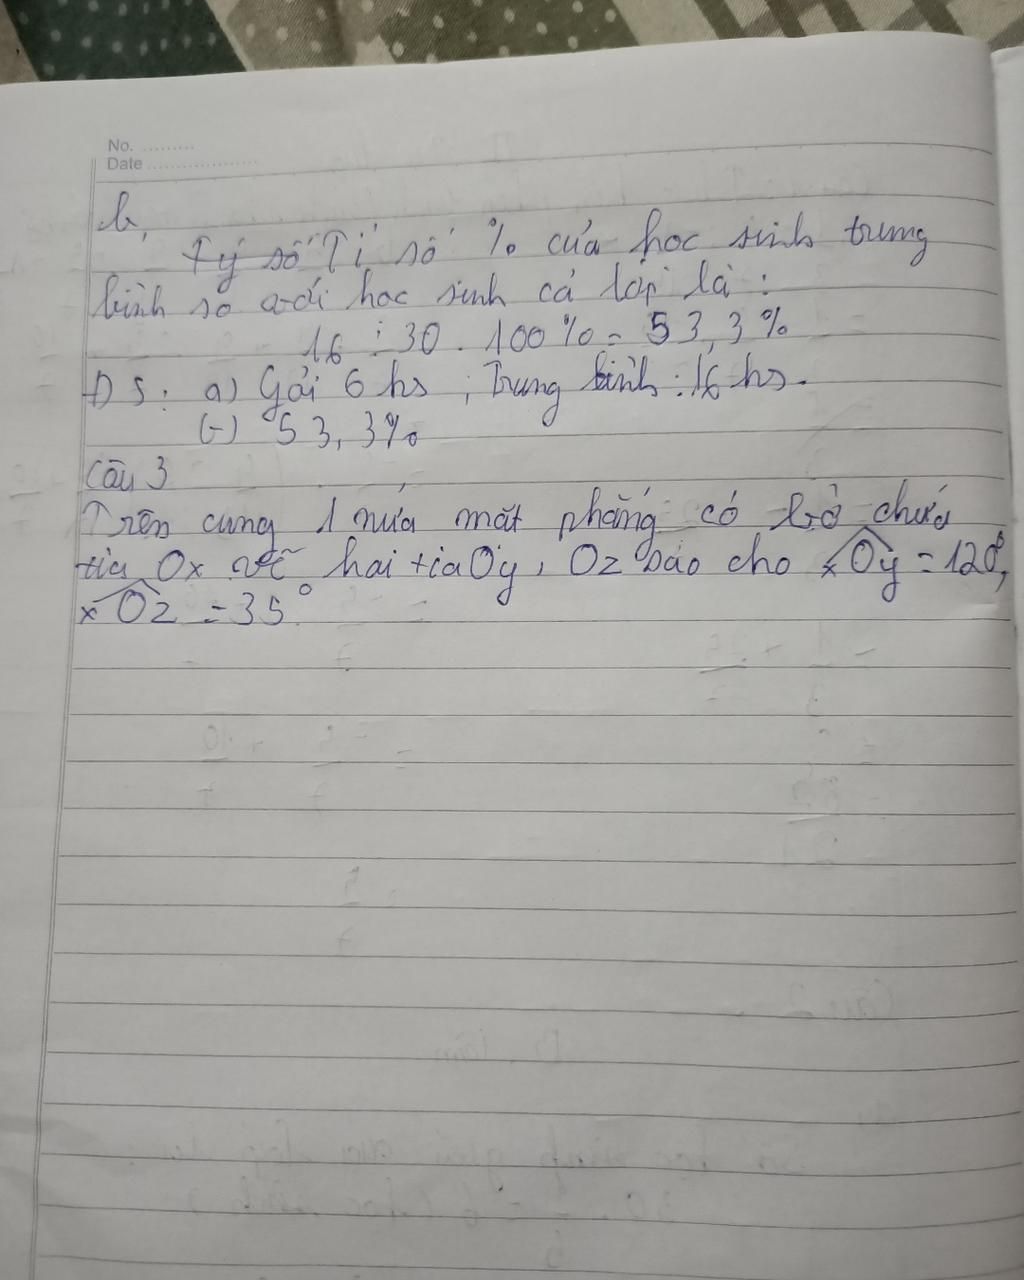 No. .........
Date ...................
b,
Tỷ số Tỉ số % của học sinh trung
bình so với học sinh cả lớp là :
16 : 30 . 100% = 53,3%
ĐS: a) Gỏi 6 hs ; Trung bình : 16 hs.
b) 53,3%
Câu 3
Trên cùng 1 nửa mặt phẳng có bờ chứa
tia Ox vẽ hai tia Oy, Oz sao cho xOy = 120°,
xOz = 35°.